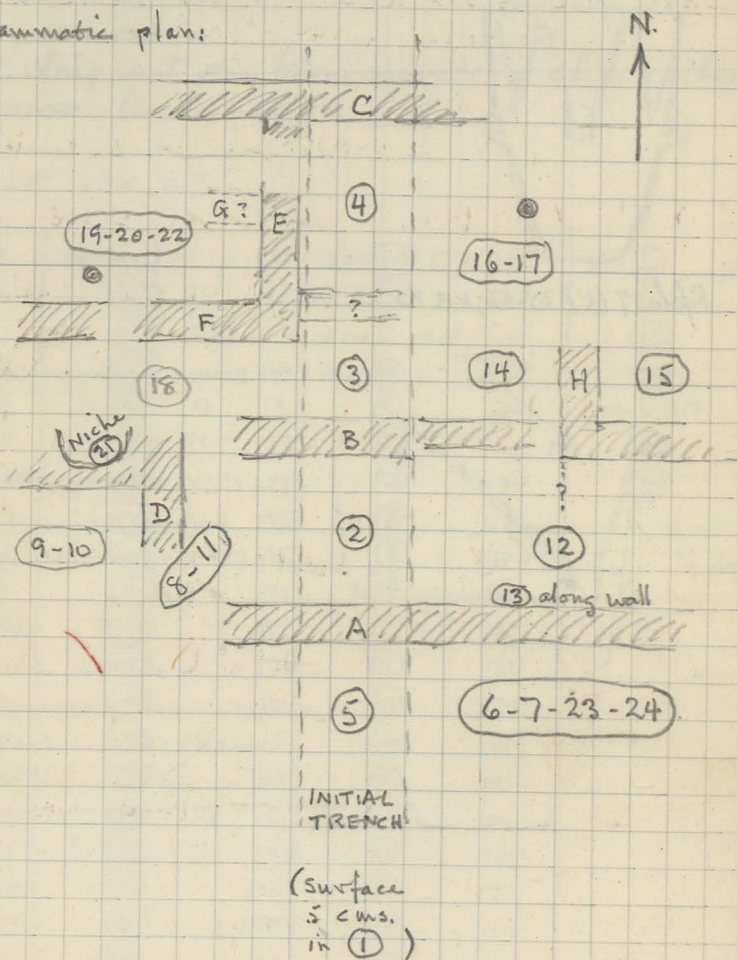 ammatic plan:
N.
C
G ?
E
4
19-20-22
16-17
?
F
18
3
14
H
15
Niche
21
B
?
D
2
9-10
8-11
12
13 along wall
A
5
6-7-23-24
INITIAL
TRENCH
(surface
5 cms.
in 1 )